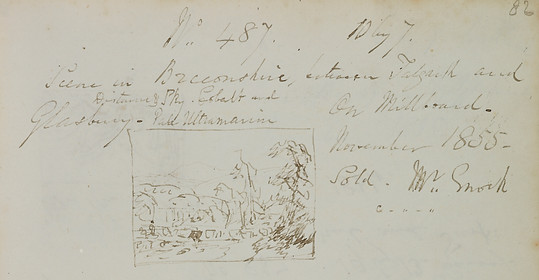 82
No. 487. 10 by 7.
Scene in Breconshire, between Talgarth and
Distance & Sky. Cobalt and
Glasbury - Pale Ultramarine
On Millboard -
November 1855 -
Sold. Mr. Enoch